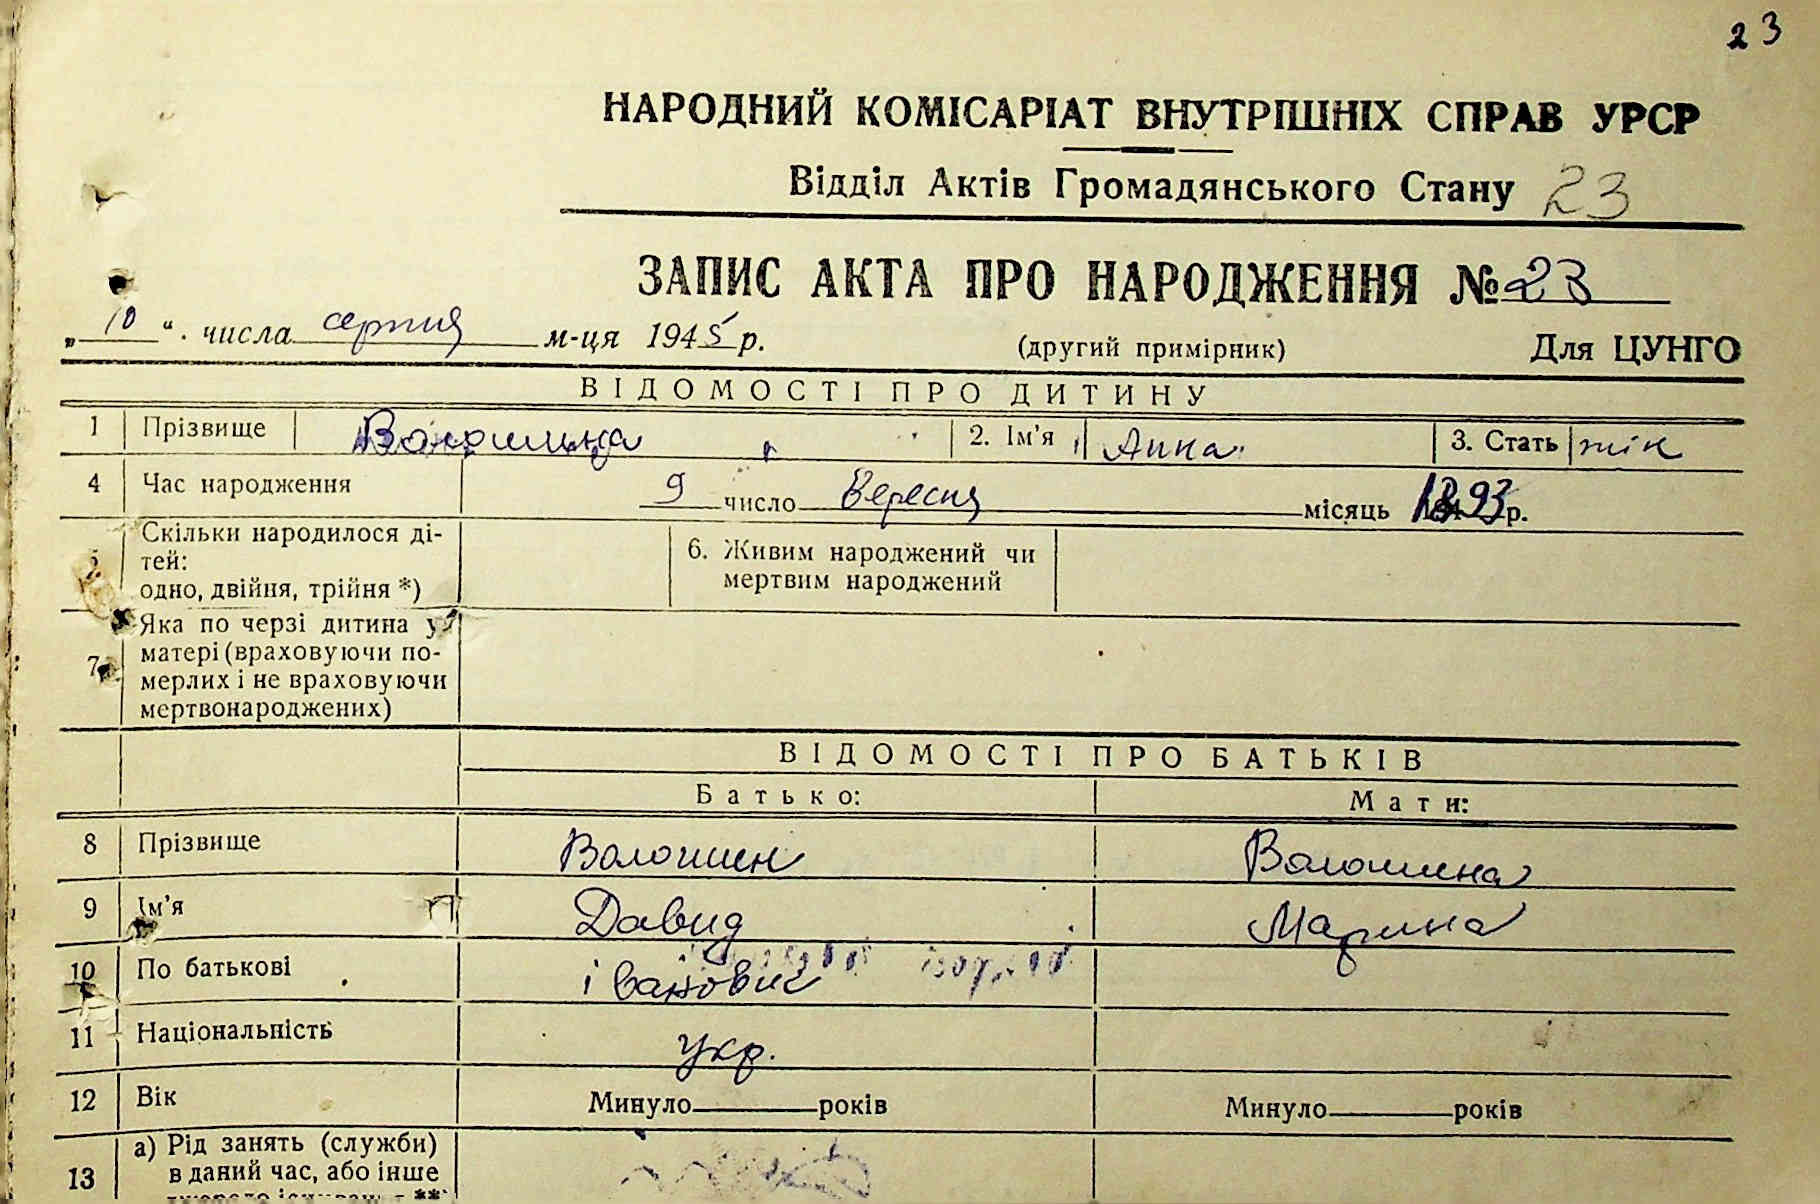 23
НАРОДНИЙ КОМІСАРІАТ ВНУТРІШНІХ СПРАВ УРСР
Відділ Актів Громадянського Стану 23
ЗАПИС АКТА ПРО НАРОДЖЕННЯ № 23
„ 10 “ числа серпня м-ця 1945 р. (другий примірник) Для ЦУНГО
ВІДОМОСТІ ПРО ДИТИНУ
1 Прізвище Волошина 2. Ім’я Анна 3. Стать жін
4 Час народження 9 число Вересня місяць 1893 р.
Скільки народилося ді-
тей:
одно, двійня, трійня *)
6. Живим народжений чи
мертвим народжений
7 Яка по черзі дитина у
матері (враховуючи по-
мерлих і не враховуючи
мертвонароджених)
ВІДОМОСТІ ПРО БАТЬКІВ
Батько: Мати:
8 Прізвище Волошин Волошина
9 Ім’я Давид Марина
10 По батькові іванович
11 Національність укр.
12 Вік Минуло років Минуло років
13 а) Рід занять (служби)
в даний час, або інше